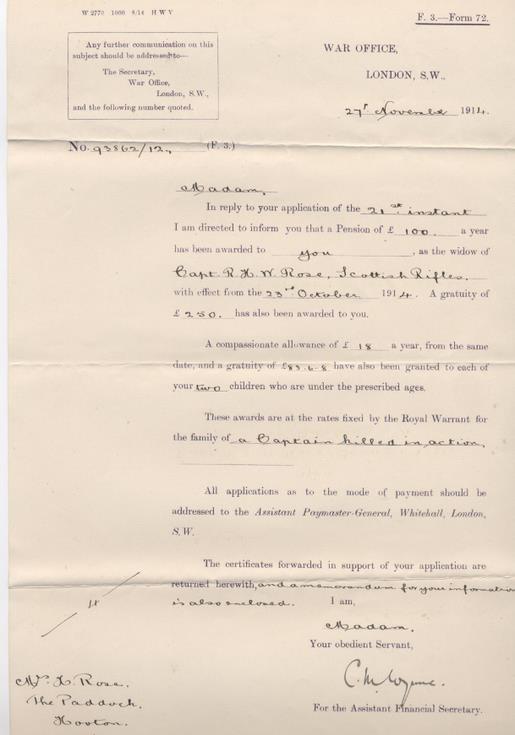 W 2770 1000 8/14 H W V
F. 3.—Form 72.
Any further communication on this
subject should be addressed to—
The Secretary,
War Office,
London, S.W.,
and the following number quoted.
WAR OFFICE,
LONDON, S.W.,
27th November 1914.
No. 93862/12. (F. 3.)
Madam,
In reply to your application of the 21st instant
I am directed to inform you that a Pension of £ 100. a year
has been awarded to you, as the widow of
Capt. R. H. W. Rose, Scottish Rifles.
with effect from the 23rd October 1914. A gratuity of
£ 250. has also been awarded to you.
A compassionate allowance of £ 18 a year, from the same
date, and a gratuity of £83.6.8 have also been granted to each of
your two children who are under the prescribed ages.
These awards are at the rates fixed by the Royal Warrant for
the family of a Captain killed in action.
All applications as to the mode of payment should be
addressed to the Assistant Paymaster-General, Whitehall, London,
S.W.
The certificates forwarded in support of your application are
returned herewith, and a memorandum for your information
is also enclosed. I am,
Madam,
Your obedient Servant,
For the Assistant Financial Secretary.
Mrs. Rose.
The Paddock.
Hooton.